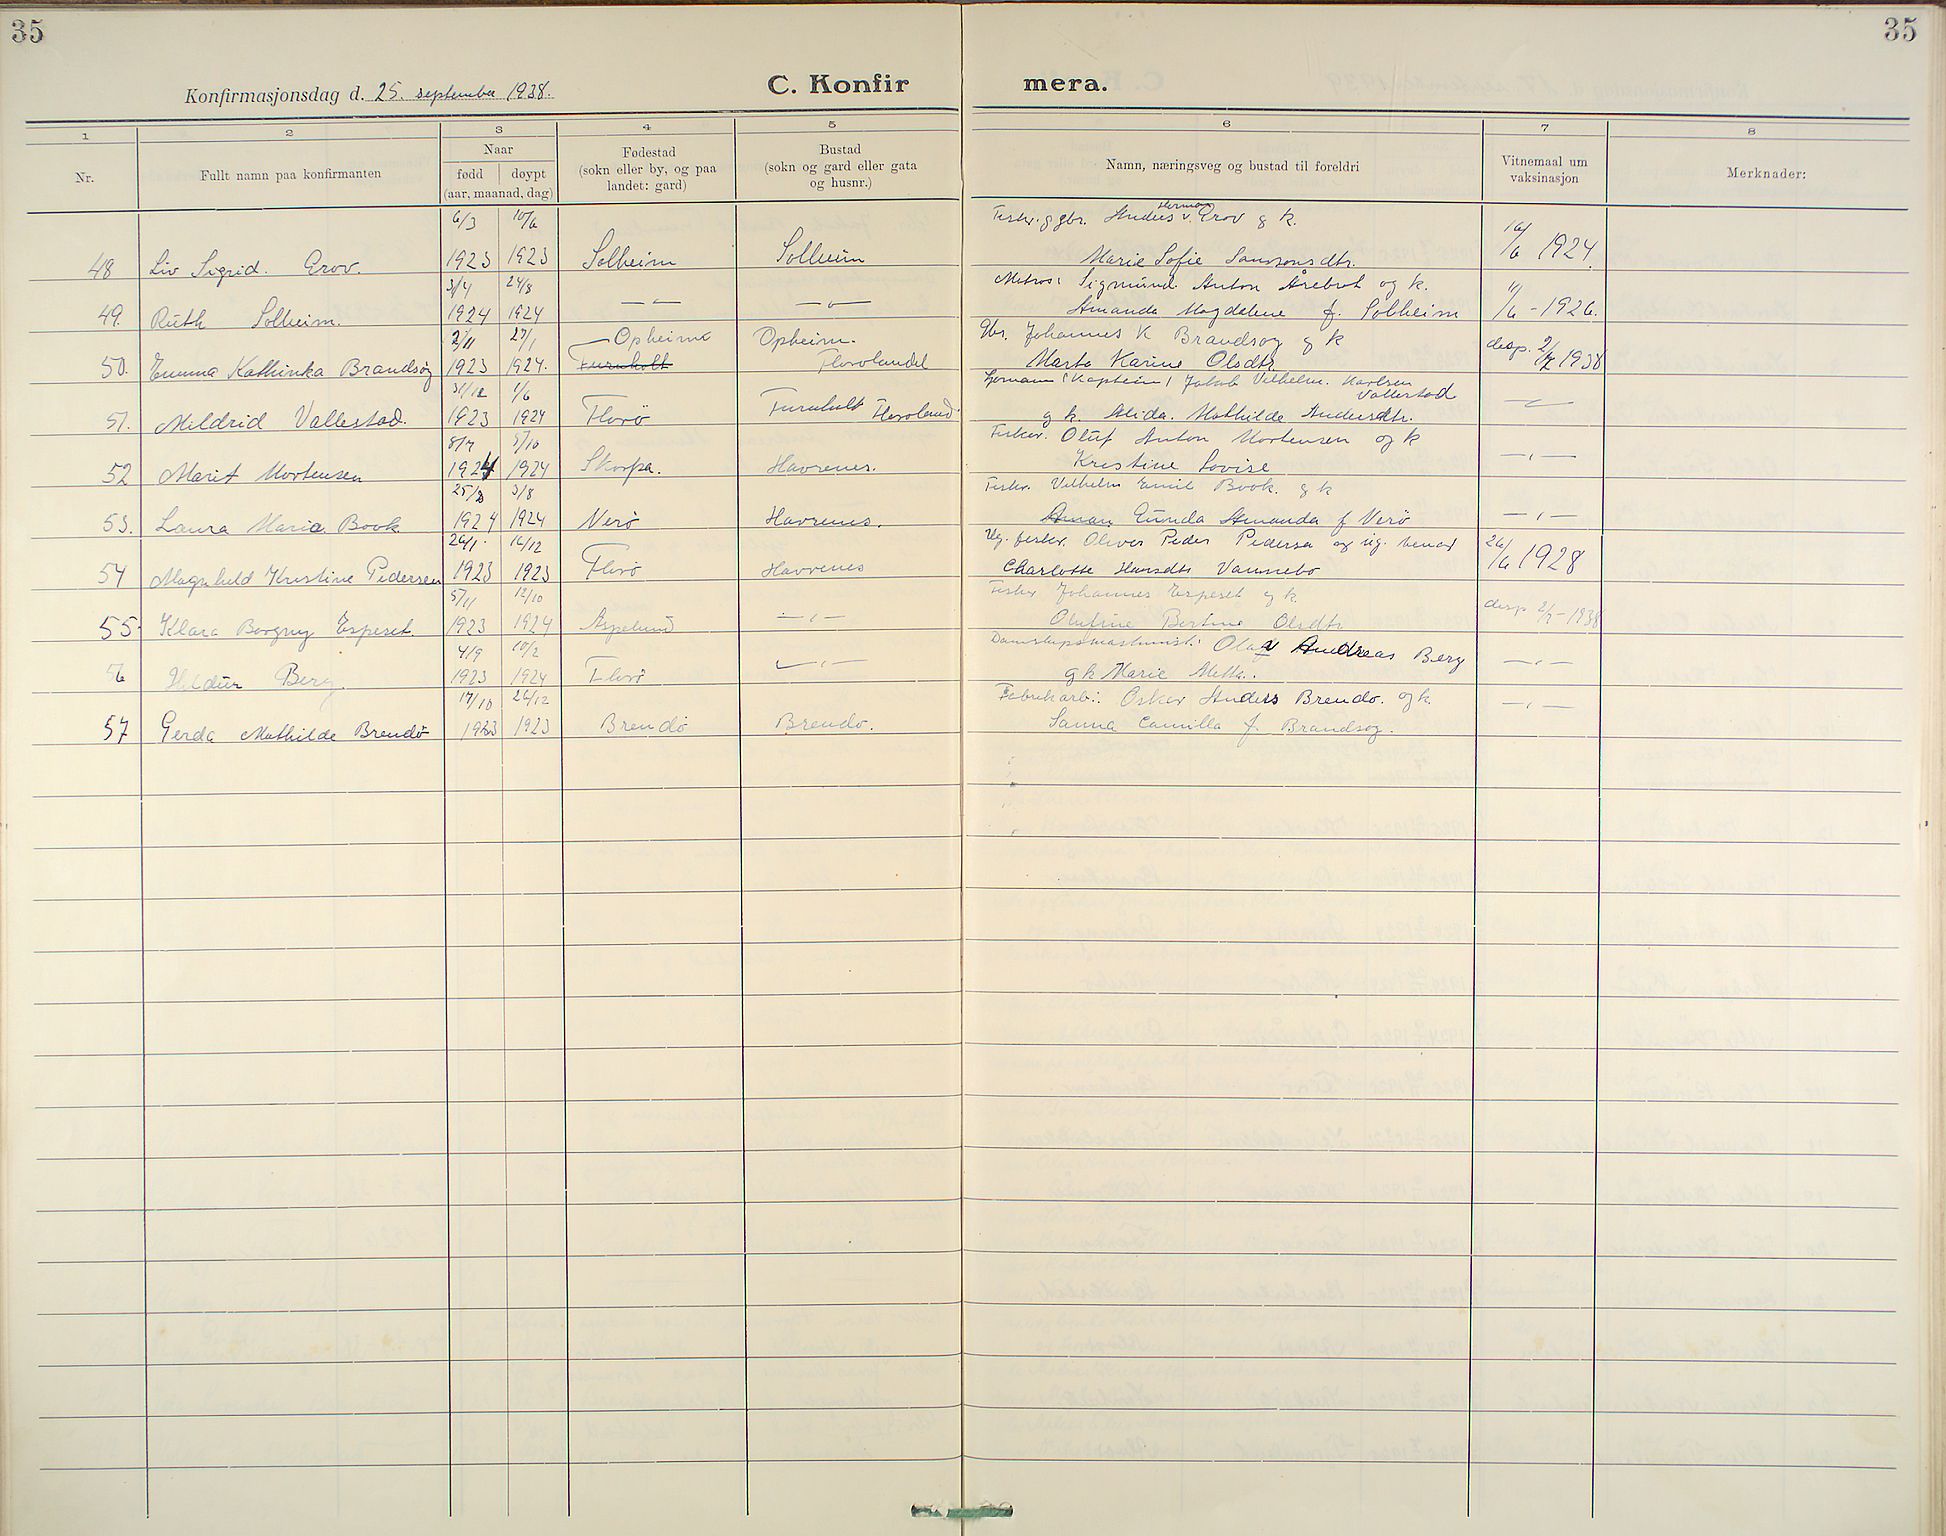 35
35
Konfirmasjonsdag d. 25. september 1938.
C. Konfir
mera.
1
2
3
4
5
6
7
8
Nr.
Fullt namn paa konfirmanten
Naar
fødd
døypt
(aar, maanad, dag)
Fødestad
(sokn eller by, og paa
landet: gard)
Bustad
(sokn og gard eller gata
og husnr.)
Namn, næringsveg og bustad til foreldri
Vitnemaal um
vaksinasjon
Merknader:
6/3 10/6 Herman
Anders v. Grov og k.
48 Liv Sigrid. Grov. 1923 1923 Solheim Solheim Marie Sofie 1924
3/4 24/8 Matros: Sigmund Anton Årebrot og k.
49. Ruth Solheim. 1924 1924 — " — — " — Amanda Magdalene f. Solheim 11/6 - 1926.
2/11 27/1 Opheim Opheim. Gbr. Johannes K Brandsøy og k
50. Emma Kathinka Brandsøy 1923 1924. Furuholt Florelandet Marta Karine Olsdtr. disp. 1938
31/12 1/6 (Kaptein) Jakob Vilhelm. Karlsen
Vallestad
51. Mildrid Vallestad. 1923 1924 Florö Furuholt Floreland. og k. Alida. Mathilde Andersdtr. — " —
5/10 Fisker. Oluf Anton Mortensen og k
52 Marit Mortensen 1924 1924 Skorpa. Havrenes. Kristine Lovise — " —
3/8 Fisker. Vilhelm Emil Book. og k
53. Laura Maria Book 1924 1924 Nerö Havrenes. Gunda Amanda f Nerö — " —
26/1 16/12 Ug. fisker. Oliver Peder Pedersen og ug.
54 Magnhild Kristine Pedersen 1923 1923 Florö Havrenes Charlotte Hansdtr Vannebo 26/6 1928
5/11 12/10 Fisker Johannes Espeset og k.
55. Klara Borgny Espeset 1923 1924 Aspelund — " — Olufine Bertine Olsdtr disp 2/7 - 1938
4/9 10/2 Dampskipsmaskinist: Olav Andreas Berg
56 Hildur Berg. 1923 1924 Florö — " — og k Marie — " —
17/10 26/12 Fabrikarb.: Oskar Anders Brendö. og k.
57 Gerda Mathilde Brendö 1923 1923 Brendö Brendö. Sanna Camilla f. Brandsøy. — " —